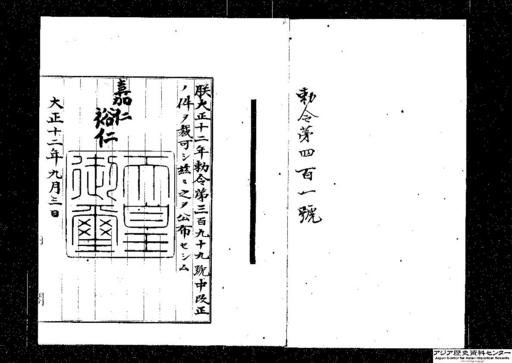 勅令第四百一號
朕大正十二年勅令第三百九十九號中改正
ノ件ヲ裁可シ玆ニ之ヲ公布セシム
嘉仁
裕仁
天皇御璽
大正十二年九月三日
アジア歴史資料センター
Japan Center for Asian Historical Records